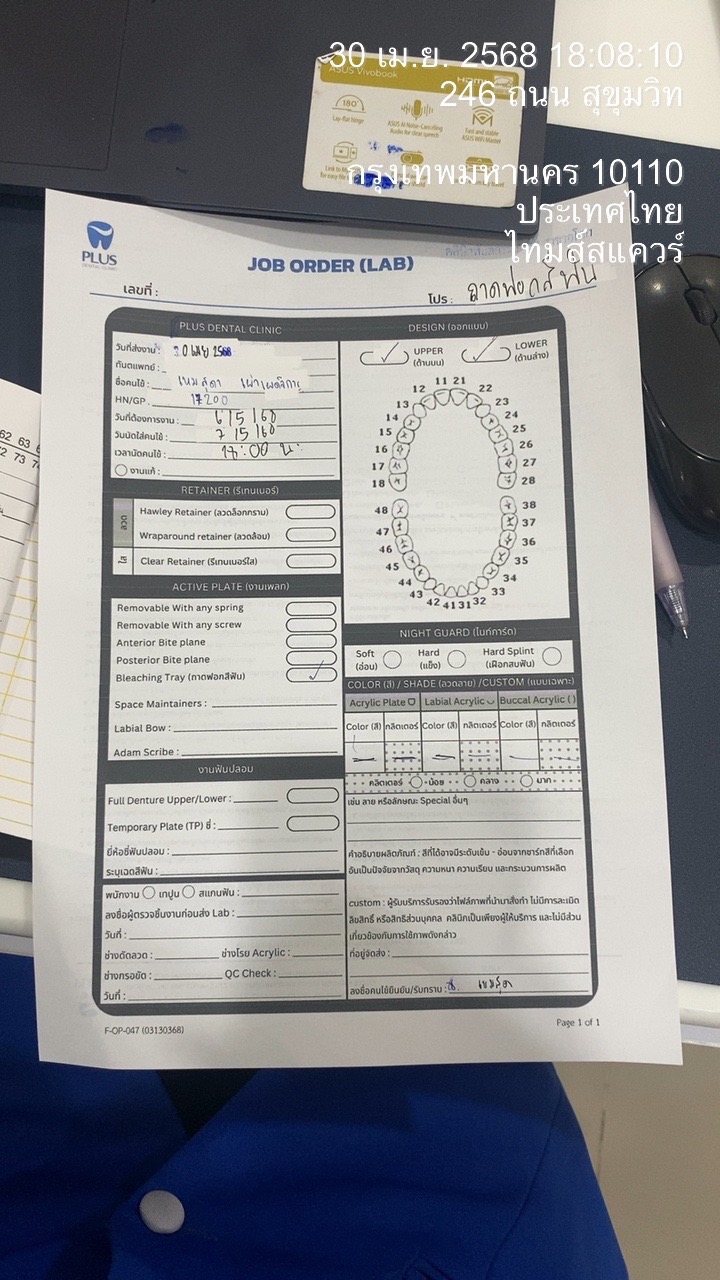 30 เม.ย. 2568 18:08:10
246 ถนน สุขุมวิท
กรุงเทพมหานคร 10110
ประเทศไทย
ไทม์ส์สแควร์
ASUS Vivobook
HDMI
180°
Lay-flat hinge
ASUS AI Noise-Canceling
Audio for clear speech
Fast and stable
ASUS WiFi Master
PLUS
DENTAL CLINIC
JOB ORDER (LAB)
เลขที่ :
โปร : ถาดฟอกสีฟัน
PLUS DENTAL CLINIC
วันที่ส่งงาน : 30 เมย 2568
ทันตแพทย์ :
ชื่อคนไข้ : เขมสุดา
HN/GP. 17200
วันที่ต้องการงาน : 6/5/68
วันนัดใส่คนไข้ : 7/5/68
เวลานัดคนไข้ : 18:00 น.
งานแก้ :
RETAINER (รีเทนเนอร์)
ลวด
Hawley Retainer (ลวดล็อกกราม)
Wraparound retainer (ลวดล้อม)
ใส
Clear Retainer (รีเทนเนอร์ใส)
ACTIVE PLATE (งานเพลท)
Removable With any spring
Removable With any screw
Anterior Bite plane
Posterior Bite plane
Bleaching Tray (ถาดฟอกสีฟัน)
Space Maintainers :
Labial Bow :
Adam Scribe :
งานฟันปลอม
Full Denture Upper/Lower :
Temporary Plate (TP) ซี่ :
ยี่ห้อซี่ฟันปลอม :
ระบุเฉดสีฟัน :
พนักงาน เทปูน สแกนฟัน :
ลงชื่อผู้ตรวจชิ้นงานก่อนส่ง Lab :
วันที่ :
ช่างดัดลวด : ช่างโรย Acrylic :
ช่างกรอขัด : QC Check :
วันที่ :
DESIGN (ออกแบบ)
UPPER
(ด้านบน)
LOWER
(ด้านล่าง)
11 21
12 22
13 23
14 24
15 25
16 26
17 27
18 28
48 38
47 37
46 36
45 35
44 34
43 33
42 41 31 32
NIGHT GUARD (ไนท์การ์ด)
Soft
(อ่อน)
Hard
(แข็ง)
Hard Splint
(เฝือกสบฟัน)
COLOR (สี) / SHADE (ลวดลาย) /CUSTOM (แบบเฉพาะ)
Acrylic Plate Labial Acrylic Buccal Acrylic ( )
Color (สี) กลิตเตอร์ Color (สี) กลิตเตอร์ Color (สี) กลิตเตอร์
กลิตเตอร์ น้อย กลาง มาก
เช่น ลาย หรือลักษณะ Special อื่นๆ
คำอธิบายผลิตภัณฑ์ : สีที่ได้อาจมีระดับเข้ม - อ่อนจากชาร์ทสีที่เลือก
อันเป็นปัจจัยจากวัสดุ ความหนา ความเรียบ และกระบวนการผลิต
custom : ผู้รับบริการรับรองว่าไฟล์ภาพที่นำมาสั่งทำ ไม่มีการละเมิด
ลิขสิทธิ์ หรือสิทธิส่วนบุคคล คลินิกเป็นเพียงผู้ให้บริการ และไม่มีส่วน
เกี่ยวข้องกับการใช้ภาพดังกล่าว
ที่อยู่จัดส่ง :
ลงชื่อคนไข้ยืนยัน/รับทราบ : เขมสุดา
F-OP-047 (03130368)
Page 1 of 1